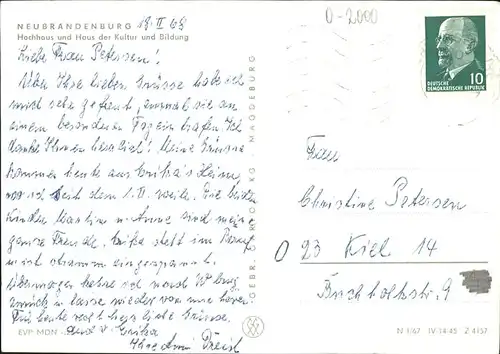 NEUBRANDENBURG 18.II 68
Hochhaus und Haus der Kultur und Bildung
Liebe Frau Petersen!
Über Ihre lieben Grüsse habe ich
mich sehr gefreut, zumal sie an
einem besonderen Tag eintrafen. Ich
danke Ihnen herzlich! Meine Grüsse
kommen heute aus Erika's Heim
wo ich seit dem 1. II. weile. Die beiden
Kinder Martina u. Anne sind meine
ganze Freude. Erika steht im Beruf
u. ist stramm eingespannt.
Übermorgen kehre ich nach
zurück u. lasse wieder von mir hören.
Für heute recht herzliche Grüsse
auch v. Erika
Ihre
EVP MDN
GEBR. GARLOFF KG MAGDEBURG
0-2000
DEUTSCHE
DEMOKRATISCHE REPUBLIK
10
Frau
Christine Petersen
23 Kiel 14
9
N 1/67 IV-14-45 Z 4157